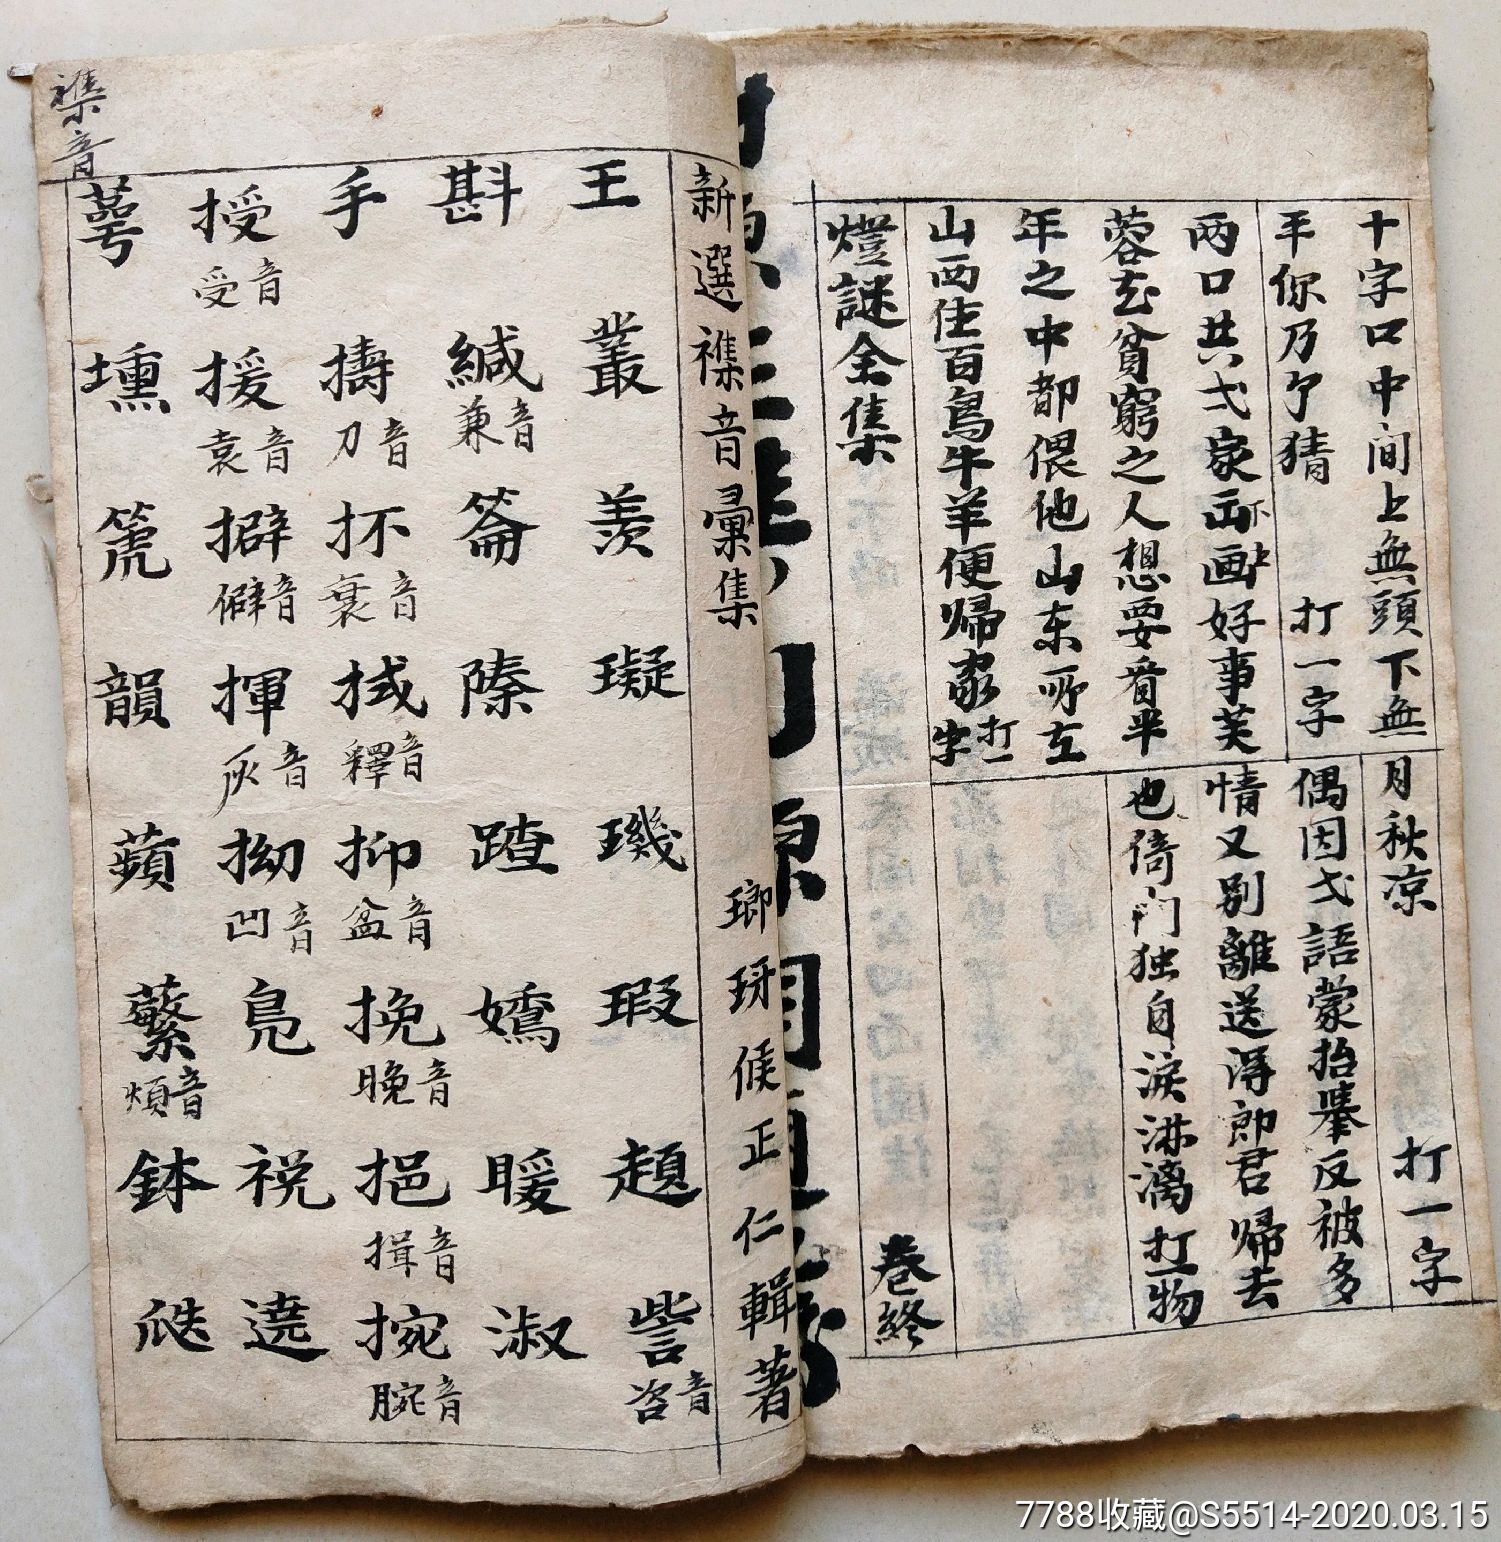 十字口中间上無頭下無
平你乃了猜 打一字
两口共弍家
好事芙
蓉玄貧窮之人想要畨半
年之中都偎他山东
山西住百鳥牛羊便帰家 打一字
月秋凉 打一字
偶因弍語蒙抬舉反被多
情又别離送得郎君帰去
也倚門独自淚淋漓 打一物
燈謎全集 卷終
新選襍音彙集 瑯琊候正仁輯著
王 叢 羨 璣 瑕 趙 訾 音咨
斟 緘 音兼 蹅 嬌 暖 淑
手 擣 音刀 抔 音裒 拭 音釋 抑 音盆 挽 音晚 挹 音揖 捥 音腕
授 音受 援 音袁 擗 音僻 揮 音灰 拗 音凹 凫 祝 遶
萼 壎 箎 韻 蘋 蘩 音煩 鉢 瓞
襍音
7788收藏@S5514-2020.03.15